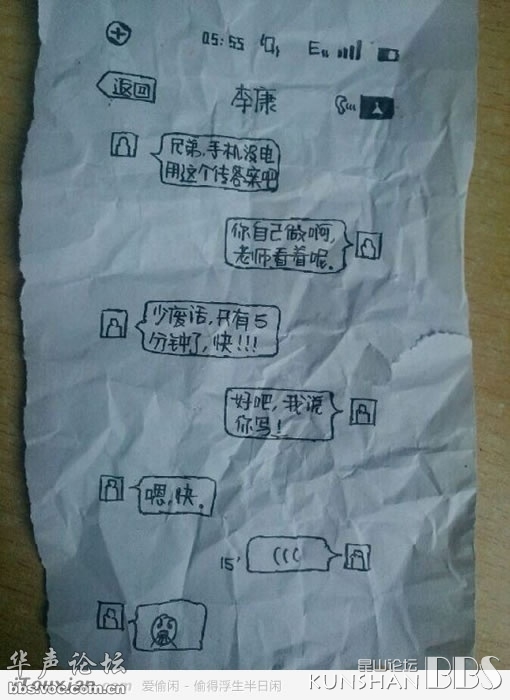 05:55 E
返回
李康
兄弟,手机没电
用这个传答案吧
你自己做啊,
老师看着呢。
少废话,只有5
分钟了,快!!!
好吧,我说
你写!
嗯,快。
15'
华声论坛
iTouxian
bbs.voc.com.cn
爱偷闲 - 偷得浮生半日闲
昆山论坛
KUNSHAN BBS